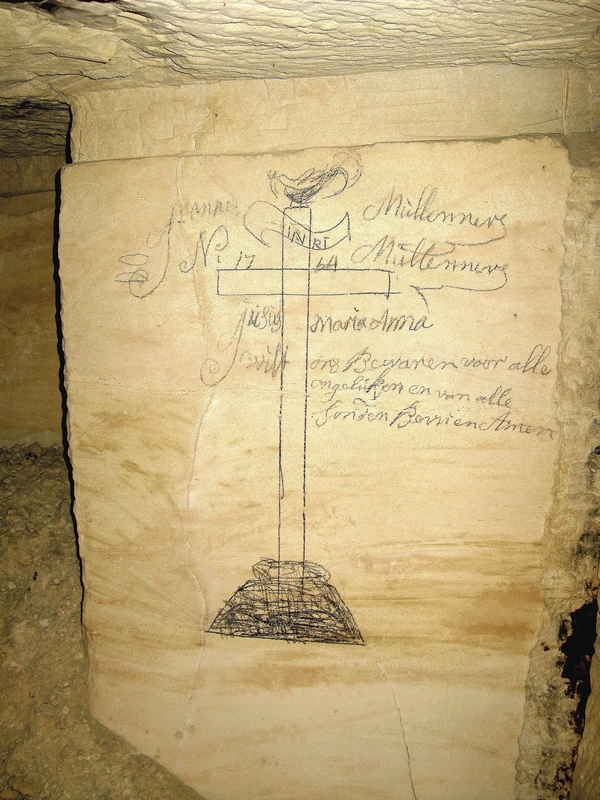 INRI
Joannes Müllenners
Ni 17 64 Müllenners
Jüsüs Maria Anna
wilt ons Bewaren voor alle
ongelüken en van alle
Sonden Bevrien Amen